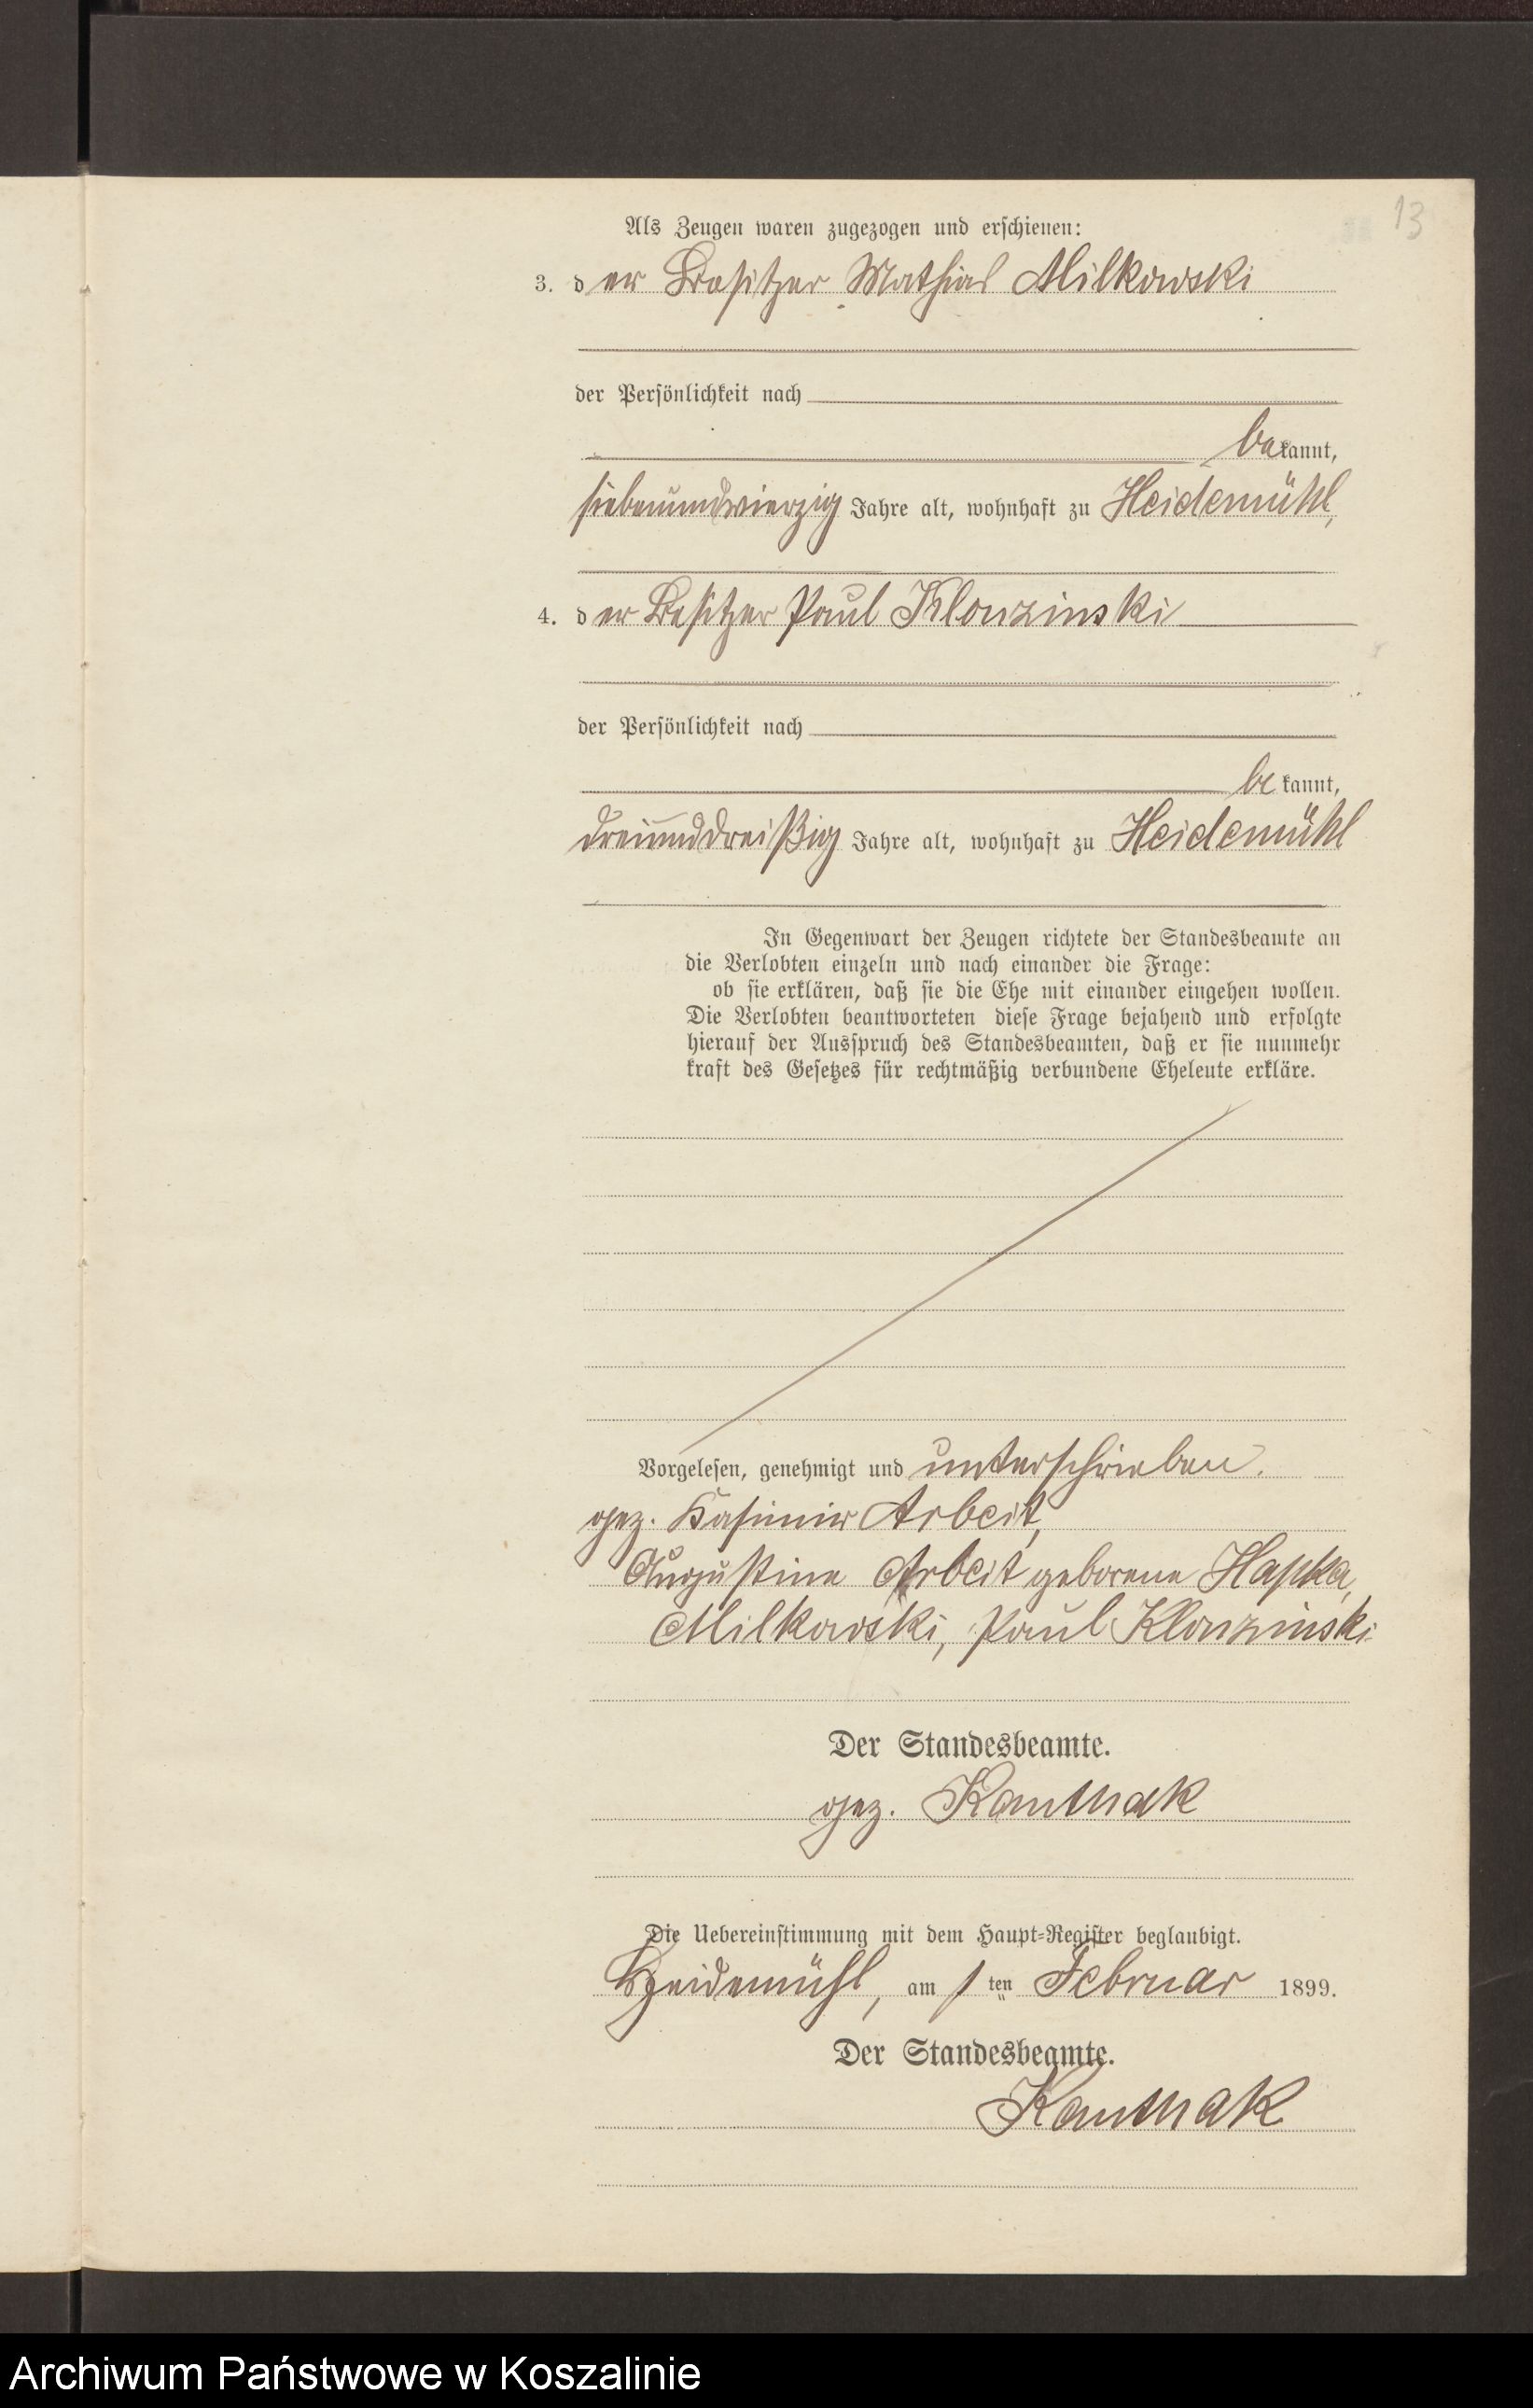 13
Als Zeugen waren zugezogen und erschienen:
3. der Besitzer Mathias Milkowski
der Persönlichkeit nach
bekannt,
siebenundvierzig Jahre alt, wohnhaft zu Heidemühl,
4. der Besitzer Paul Klonzinski
der Persönlichkeit nach
bekannt,
dreiunddreißig Jahre alt, wohnhaft zu Heidemühl
In Gegenwart der Zeugen richtete der Standesbeamte an
die Verlobten einzeln und nach einander die Frage:
ob sie erklären, daß sie die Ehe mit einander eingehen wollen.
Die Verlobten beantworteten diese Frage bejahend und erfolgte
hierauf der Ausspruch des Standesbeamten, daß er sie nunmehr
kraft des Gesetzes für rechtmäßig verbundene Eheleute erkläre.
Vorgelesen, genehmigt und unterschrieben.
gez. Kasimir Arbeit,
Augustine Arbeit geborene Hapka,
Milkowski, Paul Klonzinski
Der Standesbeamte.
gez. Kanthak
Die Uebereinstimmung mit dem Haupt-Register beglaubigt.
Heidemühl, am 1ten Februar 1899.
Der Standesbeamte.
Kanthak
Archiwum Państwowe w Koszalinie